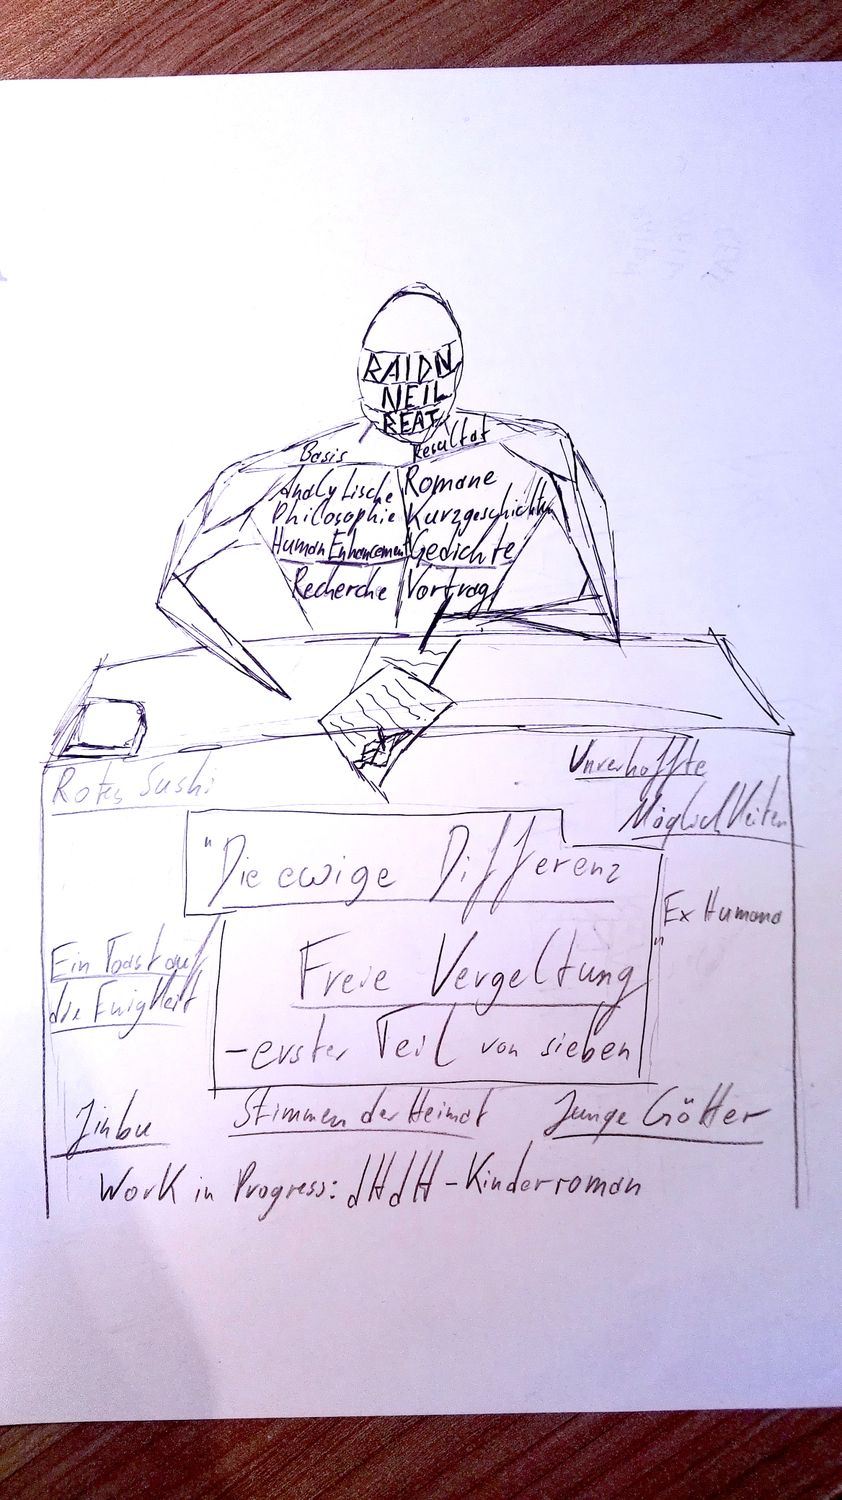 RAIDN
NEIL
BEAT
Basis
Analytische
Philosophie
Human Enhancement
Recherche
Resultat
Romane
Kurzgeschichten
Gedichte
Vortrag
Rotes Sushi
Unverhoffte
Möglichkeiten
"Die ewige Differenz
Ex Humana
Ein Toast auf
die Ewigkeit
Freie Vergeltung"
-erster Teil von sieben
Jinbu
Stimmen der Heimat
Junge Götter
Work in Progress: dHdH-Kinderroman